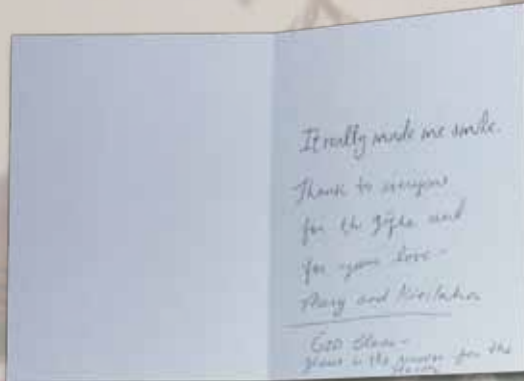 It really made me smile.
Thank to everyone
for the gifts and
for your love -
Mary and
God Bless -
in the for the